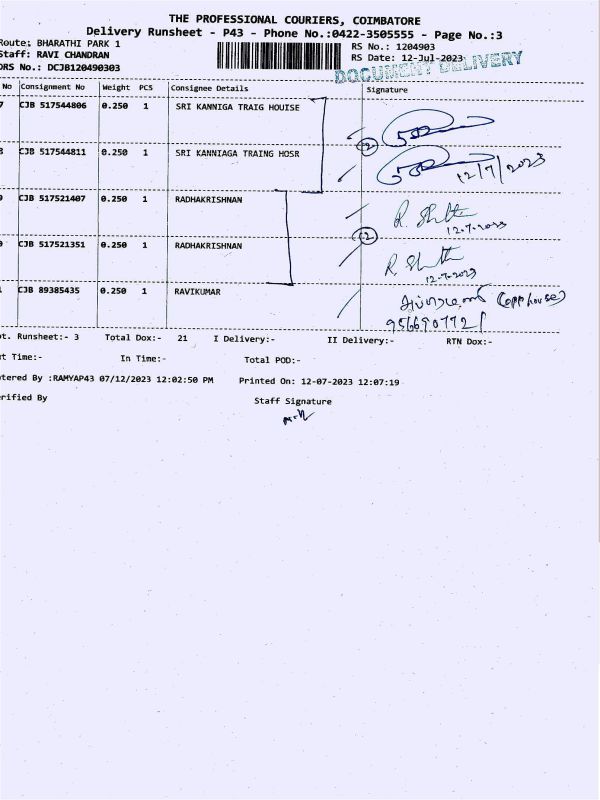 THE PROFESSIONAL COURIERS, COIMBATORE
Delivery Runsheet - P43 - Phone No.:0422-3505555 - Page No.:3
Route: BHARATHI PARK 1
Staff: RAVI CHANDRAN
DRS No.: DCJB120490303
RS No.: 1204903
RS Date: 12-Jul-2023
DOCUMENT DELIVERY
No Consignment No Weight PCS Consignee Details Signature
7 CJB 517544806 0.250 1 SRI KANNIGA TRAIG HOUISE
8 CJB 517544811 0.250 1 SRI KANNIAGA TRAING HOSR 12/7/2023
CJB 517521407 0.250 1 RADHAKRISHNAN 12.7.2023
CJB 517521351 0.250 1 RADHAKRISHNAN 12-7-2023
CJB 89385435 0.250 1 RAVIKUMAR (opp house)
ot. Runsheet:- 3 Total Dox:- 21 I Delivery:- II Delivery:- RTN Dox:-
ut Time:- In Time:- Total POD:-
ntered By :RAMYAP43 07/12/2023 12:02:50 PM Printed On: 12-07-2023 12:07:19
erified By Staff Signature